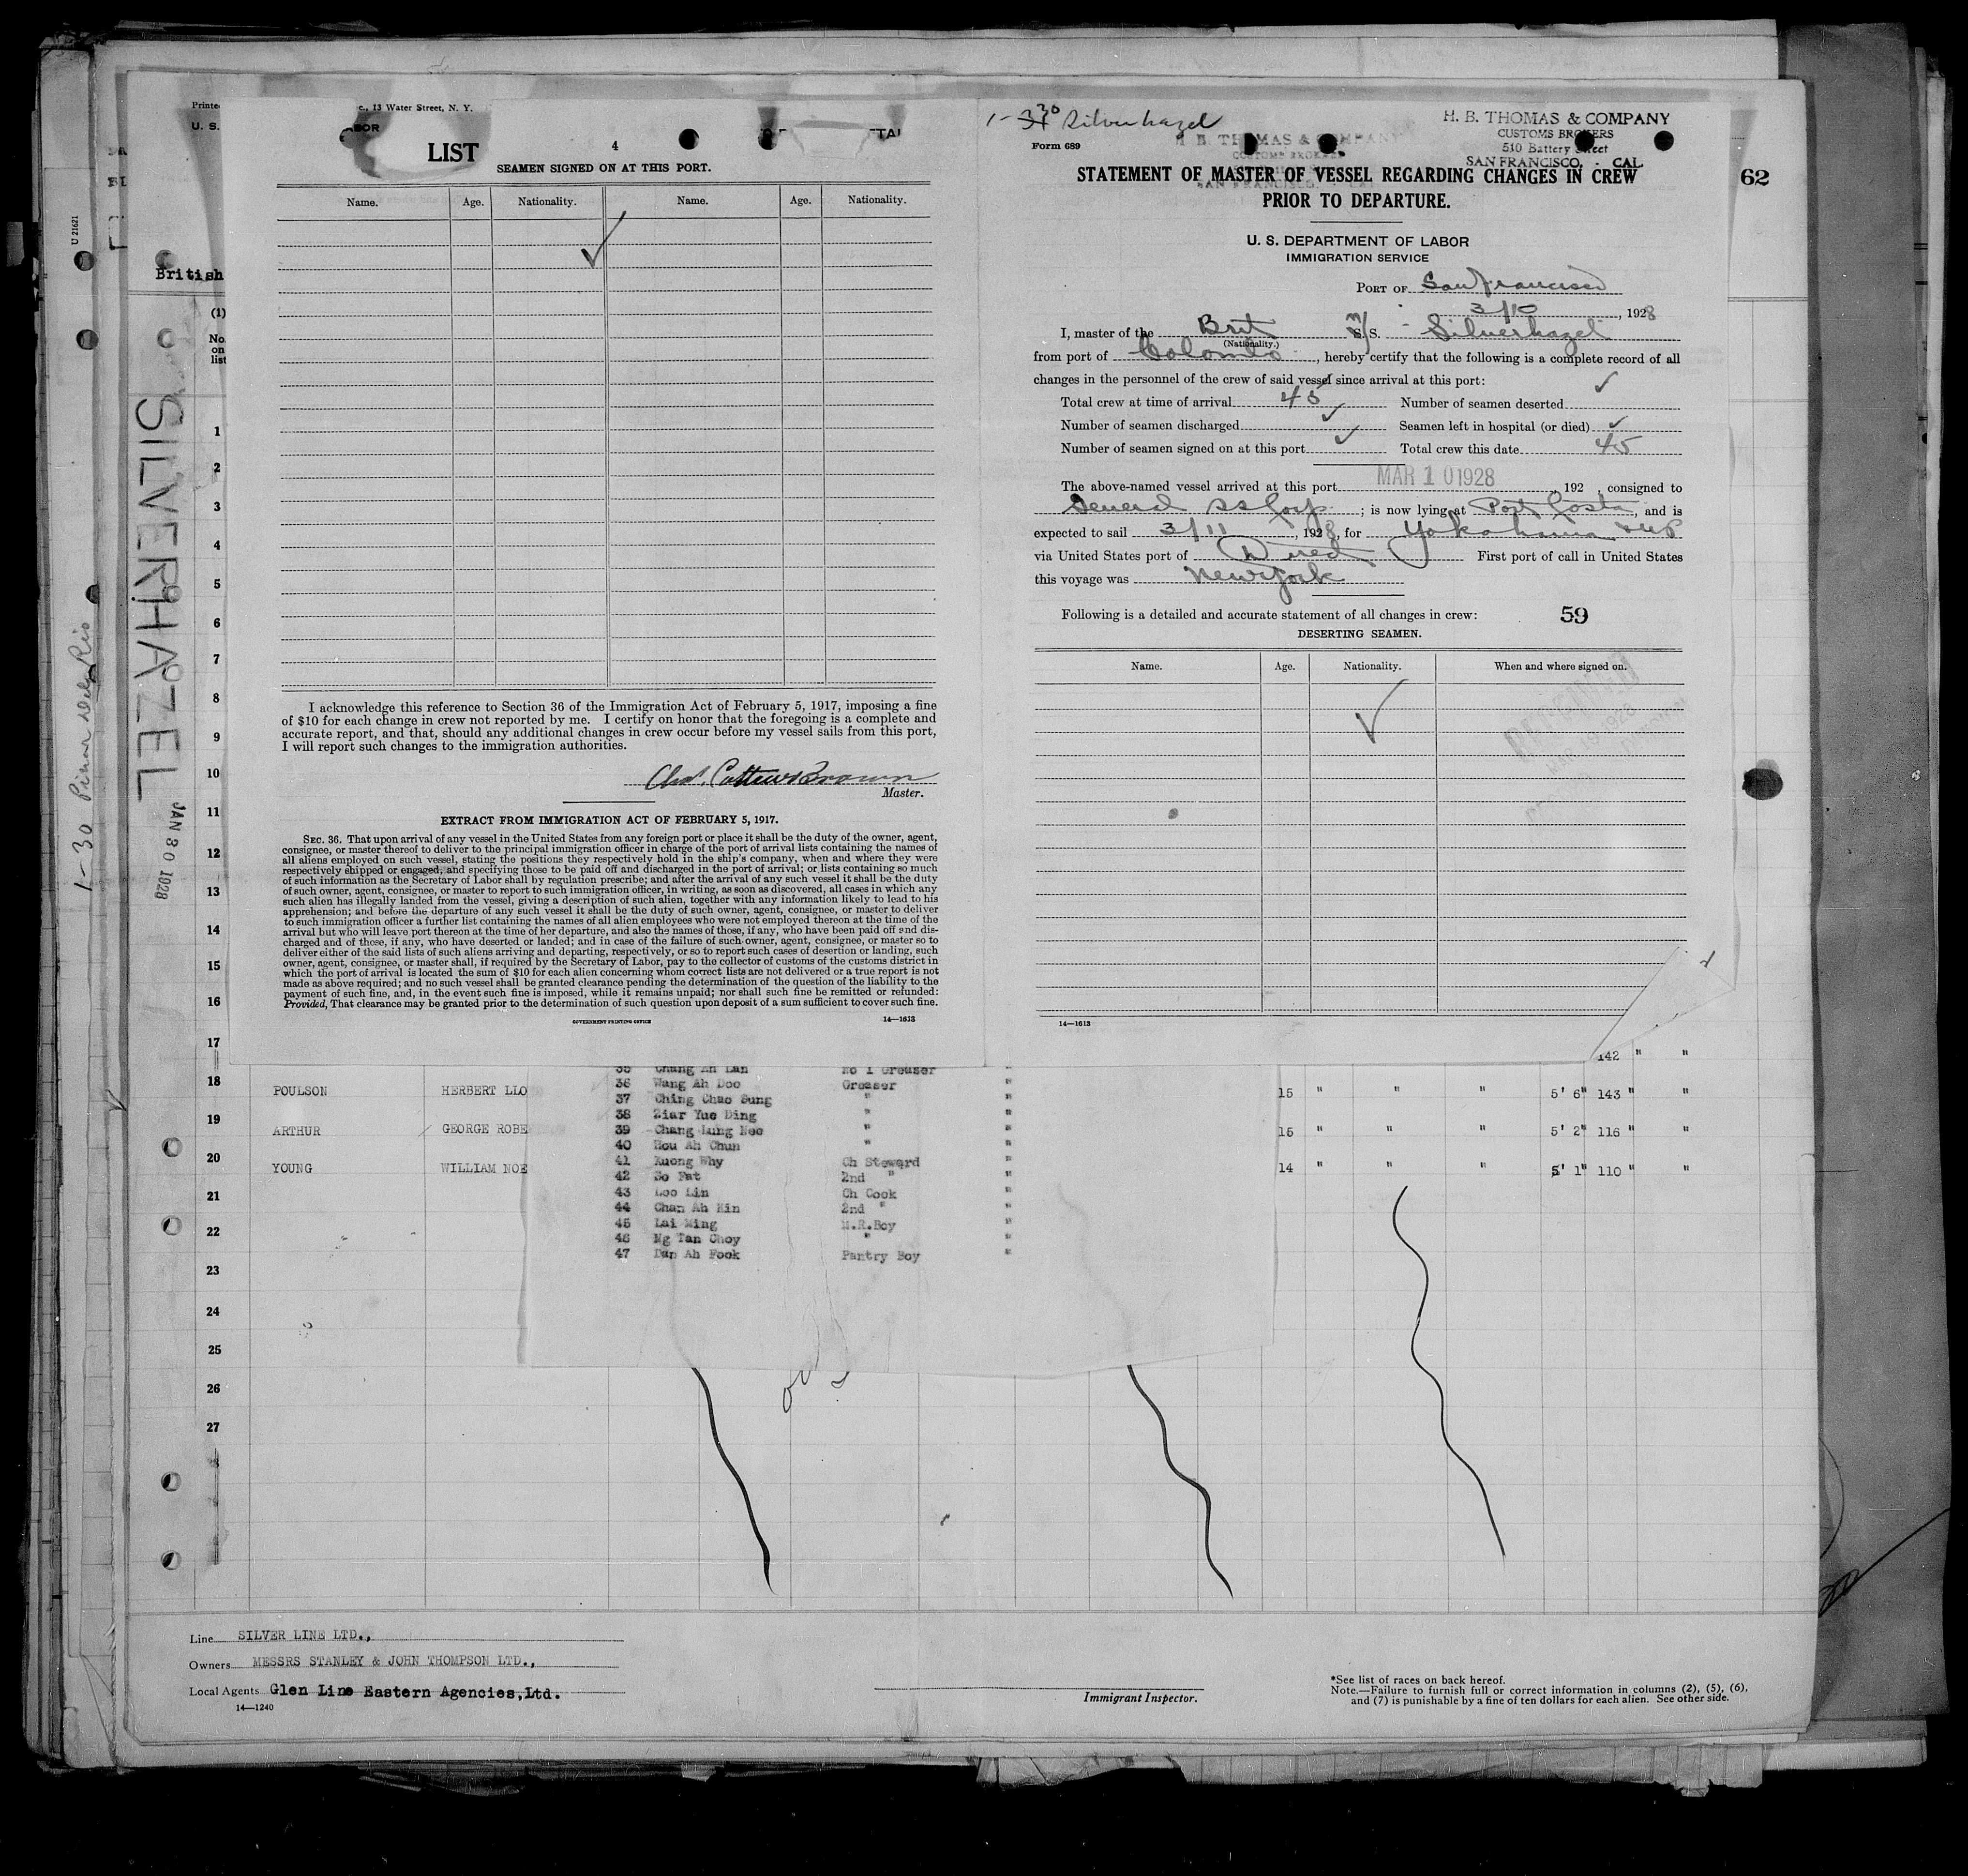 Printe
c., 13 Water Street, N. Y.
U. S.
LIST
4
SEAMEN SIGNED ON AT THIS PORT.
Name. Age. Nationality. Name. Age. Nationality.
I acknowledge this reference to Section 36 of the Immigration Act of February 5, 1917, imposing a fine
of $10 for each change in crew not reported by me. I certify on honor that the foregoing is a complete and
accurate report, and that, should any additional changes in crew occur before my vessel sails from this port,
I will report such changes to the immigration authorities.
Brown
Master.
EXTRACT FROM IMMIGRATION ACT OF FEBRUARY 5, 1917.
SEC. 36. That upon arrival of any vessel in the United States from any foreign port or place it shall be the duty of the owner, agent,
consignee, or master thereof to deliver to the principal immigration officer in charge of the port of arrival lists containing the names of
all aliens employed on such vessel, stating the positions they respectively hold in the ship's company, when and where they were
respectively shipped or engaged, and specifying those to be paid off and discharged in the port of arrival; or lists containing so much
of such information as the Secretary of Labor shall by regulation prescribe; and after the arrival of any such vessel it shall be the duty
of such owner, agent, consignee, or master to report to such immigration officer, in writing, as soon as discovered, all cases in which any
such alien has illegally landed from the vessel, giving a description of such alien, together with any information likely to lead to his
apprehension; and before the departure of any such vessel it shall be the duty of such owner, agent, consignee, or master to deliver
to such immigration officer a further list containing the names of all alien employees who were not employed thereon at the time of the
arrival but who will leave port thereon at the time of her departure, and also the names of those, if any, who have been paid off and dis-
charged and of those, if any, who have deserted or landed; and in case of the failure of such owner, agent, consignee, or master so to
deliver either of the said lists of such aliens arriving and departing, respectively, or so to report such cases of desertion or landing, such
owner, agent, consignee, or master shall, if required by the Secretary of Labor, pay to the collector of customs of the customs district in
which the port of arrival is located the sum of $10 for each alien concerning whom correct lists are not delivered or a true report is not
made as above required; and no such vessel shall be granted clearance pending the determination of the question of the liability to the
payment of such fine, and, in the event such fine is imposed, while it remains unpaid; nor shall such fine be remitted or refunded:
Provided, That clearance may be granted prior to the determination of such question upon deposit of a sum sufficient to cover such fine.
GOVERNMENT PRINTING OFFICE
14—1613
1-30 Silverhazel
Form 689
H. B. THOMAS & COMPANY
CUSTOMS BROKERS
510 Battery Street
SAN FRANCISCO, - CAL
STATEMENT OF MASTER OF VESSEL REGARDING CHANGES IN CREW
PRIOR TO DEPARTURE.
62
U. S. DEPARTMENT OF LABOR
IMMIGRATION SERVICE
PORT OF San Francisco
3/10, 1928
I, master of the Brit M/S. Silverhazel
(Nationality.)
from port of Colombo, hereby certify that the following is a complete record of all
changes in the personnel of the crew of said vessel since arrival at this port:
Total crew at time of arrival 45 Number of seamen deserted
Number of seamen discharged Seamen left in hospital (or died)
Number of seamen signed on at this port Total crew this date 45
The above-named vessel arrived at this port MAR 10 1928, 192 , consigned to
General SS Corp; is now lying at Port Costa, and is
expected to sail 3/11, 1928, for Yokohama
via United States port of Direct First port of call in United States
this voyage was New York
Following is a detailed and accurate statement of all changes in crew: 59
DESERTING SEAMEN.
Name. Age. Nationality. When and where signed on.
14—1613
U 21621
1-30 Pinar del Rio
SILVERHAZEL
JAN 30 1928
British
(1)
No.
on
list
1
2
3
4
5
6
7
8
9
10
11
12
13
14
15
16
17 142 " "
18 POULSON HERBERT LLO 15 " " " 5' 6" 143 " "
19 ARTHUR GEORGE ROBE 15 " " " 5' 2" 116 " "
20 YOUNG WILLIAM NOE 14 " " " 5' 1" 110 " "
21
22
23
24
25
26
27
35 Chang Ah Lan No 1 Greaser "
36 Wang Ah Doo Greaser "
37 Ching Chao Sung " "
38 Ziar Yue Ding " "
39 Chang Lung Nee " "
40 Hou Ah Chun " "
41 Kuong Why Ch Steward "
42 So Fat 2nd " "
43 Loo Lin Ch Cook "
44 Chan Ah Hin 2nd " "
45 Lai Ming M.R.Boy "
46 Ng Tan Choy " "
47 Dan Ah Fook Pantry Boy "
Line SILVER LINE LTD.,
Owners MESSRS STANLEY & JOHN THOMPSON LTD.,
Local Agents Glen Line Eastern Agencies, Ltd.
14—1240
Immigrant Inspector.
*See list of races on back hereof.
NOTE.—Failure to furnish full or correct information in columns (2), (5), (6),
and (7) is punishable by a fine of ten dollars for each alien. See other side.